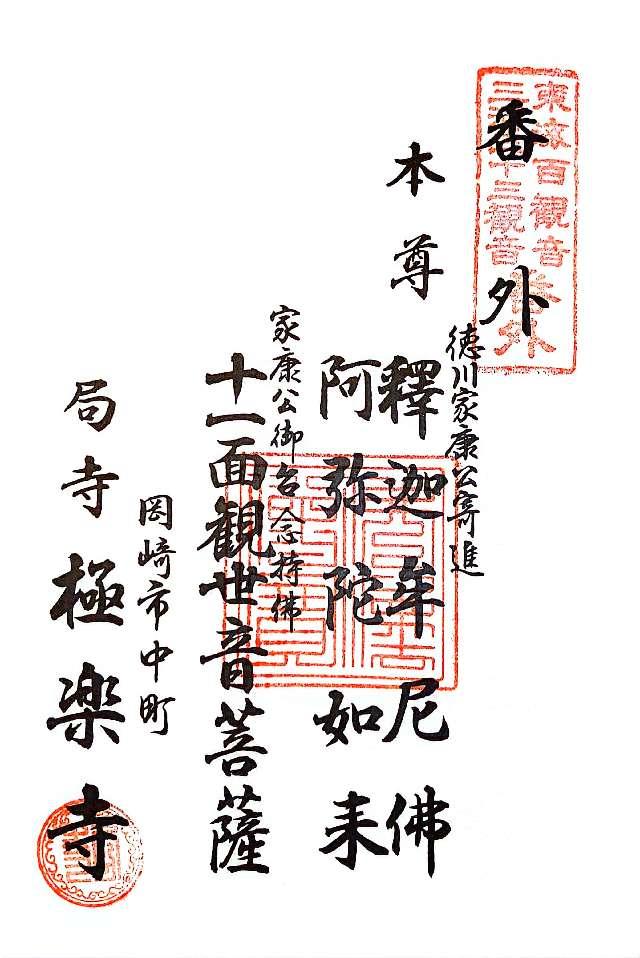 東海百観音
三河三十三観音番外
番外
徳川家康公寄進
本尊 釋迦牟尼佛
阿弥陀如来
家康公御台念持佛
十一面観世音菩薩
岡崎市中町
局寺極楽寺